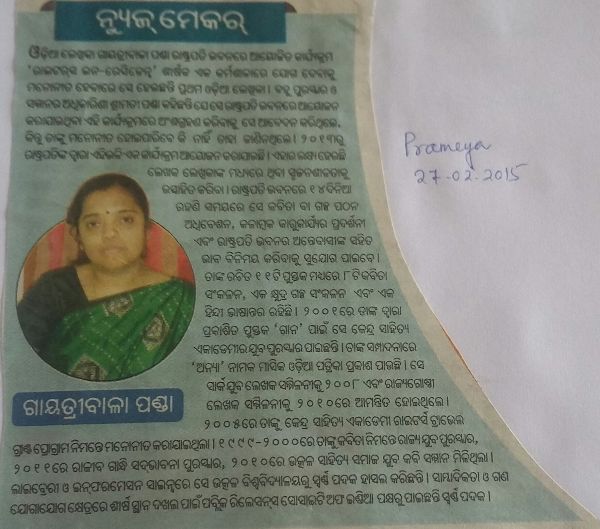 ନ୍ୟୁଜ୍ ମେକର୍
ଓଡ଼ିଆ ଲେଖିକା ଗାୟତ୍ରୀବାଳା ପଣ୍ଡା ରାଷ୍ଟ୍ରପତି ଭବନରେ ଆୟୋଜିତ କାର୍ଯ୍ୟକ୍ରମ
'ରାଇଟର୍ସ ଇନ-ରେସିଡେନ୍ସ' ଶୀର୍ଷକ ଏକ କର୍ମଶାଳାରେ ଯୋଗ ଦେବାକୁ
ମନୋନୀତ ହେବାରେ ସେ ହେଉଛନ୍ତି ପ୍ରଥମ ଓଡ଼ିଆ ଲେଖିକା । ବହୁ ପୁରସ୍କାର ଓ
ସମ୍ମାନର ଅଧିକାରିଣୀ ଶ୍ରୀମତୀ ପଣ୍ଡା କହିଛନ୍ତି ଯେ ସେ ରାଷ୍ଟ୍ରପତି ଭବନରେ ଆୟୋଜନ
କରାଯାଉଥିବା ଏହି କାର୍ଯ୍ୟକ୍ରମରେ ଅଂଶଗ୍ରହଣ କରିବାକୁ ସେ ଆବେଦନ କରିଥିଲେ,
କିନ୍ତୁ ତାଙ୍କୁ ମନୋନୀତ ହୋଇପାରିବେ କି ନାହିଁ ତାହା ଜାଣିନଥିଲେ । ୨୦୧୩ରୁ
ରାଷ୍ଟ୍ରପତିଙ୍କ ଦ୍ୱାରା ଏହିଭଳି ଏକ କାର୍ଯ୍ୟକ୍ରମ ଆୟୋଜନ କରାଯାଉଛି । ଏହାର ଲକ୍ଷ୍ୟ ହେଉଛି
ଲେଖକ ଲେଖିକାଙ୍କ ମଧ୍ୟରେ ଥିବା ସୃଜନଶୀଳତାକୁ
ଉତ୍ସାହିତ କରିବା । ରାଷ୍ଟ୍ରପତି ଭବନରେ ୧୪ ଦିନିଆ
ରହଣି ସମୟରେ ସେ କବିତା ବା ଗଳ୍ପ ପଠନ
ଅଧିବେଶନ, କଳାତ୍ମକ କାରୁକାର୍ଯ୍ୟର ପ୍ରଦର୍ଶନୀ
ଏବଂ ରାଷ୍ଟ୍ରପତି ଭବନର ଅନ୍ତେବାସୀଙ୍କ ସହିତ
ଭାବ ବିନିମୟ କରିବାକୁ ସୁଯୋଗ ପାଇବେ ।
ତାଙ୍କ ରଚିତ ୧୧ଟି ପୁସ୍ତକ ମଧ୍ୟରେ ୮ଟି କବିତା
ସଂକଳନ, ଏକ କ୍ଷୁଦ୍ର ଗଳ୍ପ ସଂକଳନ ଏବଂ ଏକ
ହିନ୍ଦୀ ଭାଷାନ୍ତର ରହିଛି । ୨୦୦୧ରେ ତାଙ୍କ ଦ୍ୱାରା
ପ୍ରକାଶିତ ପୁସ୍ତକ 'ଗାନ' ପାଇଁ ସେ କେନ୍ଦ୍ର ସାହିତ୍ୟ
ଏକାଡେମୀର ଯୁବ ପୁରସ୍କାର ପାଇଛନ୍ତି । ତାଙ୍କ ସମ୍ପାଦନାରେ
'ଅନ୍ୟା' ନାମକ ମାସିକ ଓଡ଼ିଆ ପତ୍ରିକା ପ୍ରକାଶ ପାଉଛି । ସେ
ସାର୍କ ଯୁବ ଲେଖକ ସମ୍ମିଳନୀକୁ ୨୦୦୮ ଏବଂ ରାଜ୍ୟଗୋଷ୍ଠୀ
ଲେଖକ ସମ୍ମିଳନୀକୁ ୨୦୧୦ରେ ଆମନ୍ତ୍ରିତ ହୋଇଥିଲେ ।
୨୦୦୫ରେ ତାଙ୍କୁ କେନ୍ଦ୍ର ସାହିତ୍ୟ ଏକାଡେମୀ ରାଇଟର୍ସ ଟ୍ରାଭେଲ
ଗ୍ରାଣ୍ଟ ପ୍ରୋଗ୍ରାମ ନିମନ୍ତେ ମନୋନୀତ କରାଯାଇଥିଲା । ୧୯୯୯-୨୦୦୦ରେ ତାଙ୍କୁ କବିତା ନିମନ୍ତେ ରାଜ୍ୟ ଯୁବ ପୁରସ୍କାର,
୨୦୧୧ରେ ରାଜୀବ ଗାନ୍ଧି ସଦ୍ଭାବନା ପୁରସ୍କାର, ୨୦୧୦ରେ ଉତ୍କଳ ସାହିତ୍ୟ ସମାଜ ଯୁବ କବି ସମ୍ମାନ ମିଳିଥିଲା ।
ଲାଇବ୍ରେରୀ ଓ ଇନ୍‌ଫରମେସନ ସାଇନ୍ସରେ ସେ ଉତ୍କଳ ବିଶ୍ୱବିଦ୍ୟାଳୟରୁ ସ୍ୱର୍ଣ୍ଣ ପଦକ ହାସଲ କରିଛନ୍ତି । ସାମ୍ବାଦିକତା ଓ ଗଣ
ଯୋଗାଯୋଗ କ୍ଷେତ୍ରରେ ଶୀର୍ଷ ସ୍ଥାନ ଦଖଲ ପାଇଁ ପବ୍ଲିକ ରିଲେସନ୍ସ ସୋସାଇଟି ଅଫ ଇଣ୍ଡିଆ ପକ୍ଷରୁ ପାଇଛନ୍ତି ସ୍ୱର୍ଣ୍ଣ ପଦକ ।
ଗାୟତ୍ରୀବାଳା ପଣ୍ଡା
Prameya
27-02-2015